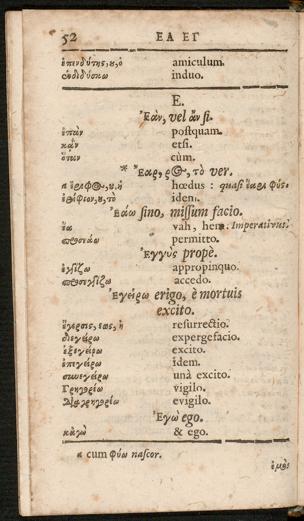 52 ΕΑ ΕΓ
ἐπενδύτης, ου, ὁ amiculum.
ἐνδιδύσκω induo.
E.
Ἐὰν, vel ἄν si.
ἐπὰν postquam.
κἂν etsi.
ὅταν cùm.
* Ἔαρ, ρος, τὸ ver.
a ἔριφος, ου, ὁ hœdus : quasi
ἐρίφιον, ου, τὸ idem.
Ἐάω sino, missum facio.
ἔα vah, hem. Imperativus.
προσεάω permitto.
Ἐγγὺς propè.
ἐγγίζω appropinquo.
προσεγγίζω accedo.
Ἐγείρω erigo, è mortuis
excito.
ἔγερσις, εως, ἡ resurrectio.
διεγείρω expergefacio.
ἐξεγείρω excito.
ἐπεγείρω idem.
συνεγείρω unà excito.
Γρηγορέω vigilo.
Διαγρηγορέω evigilo.
Ἐγὼ ego.
κἀγὼ & ego.
a cum φύω nascor.
ἐμὸς